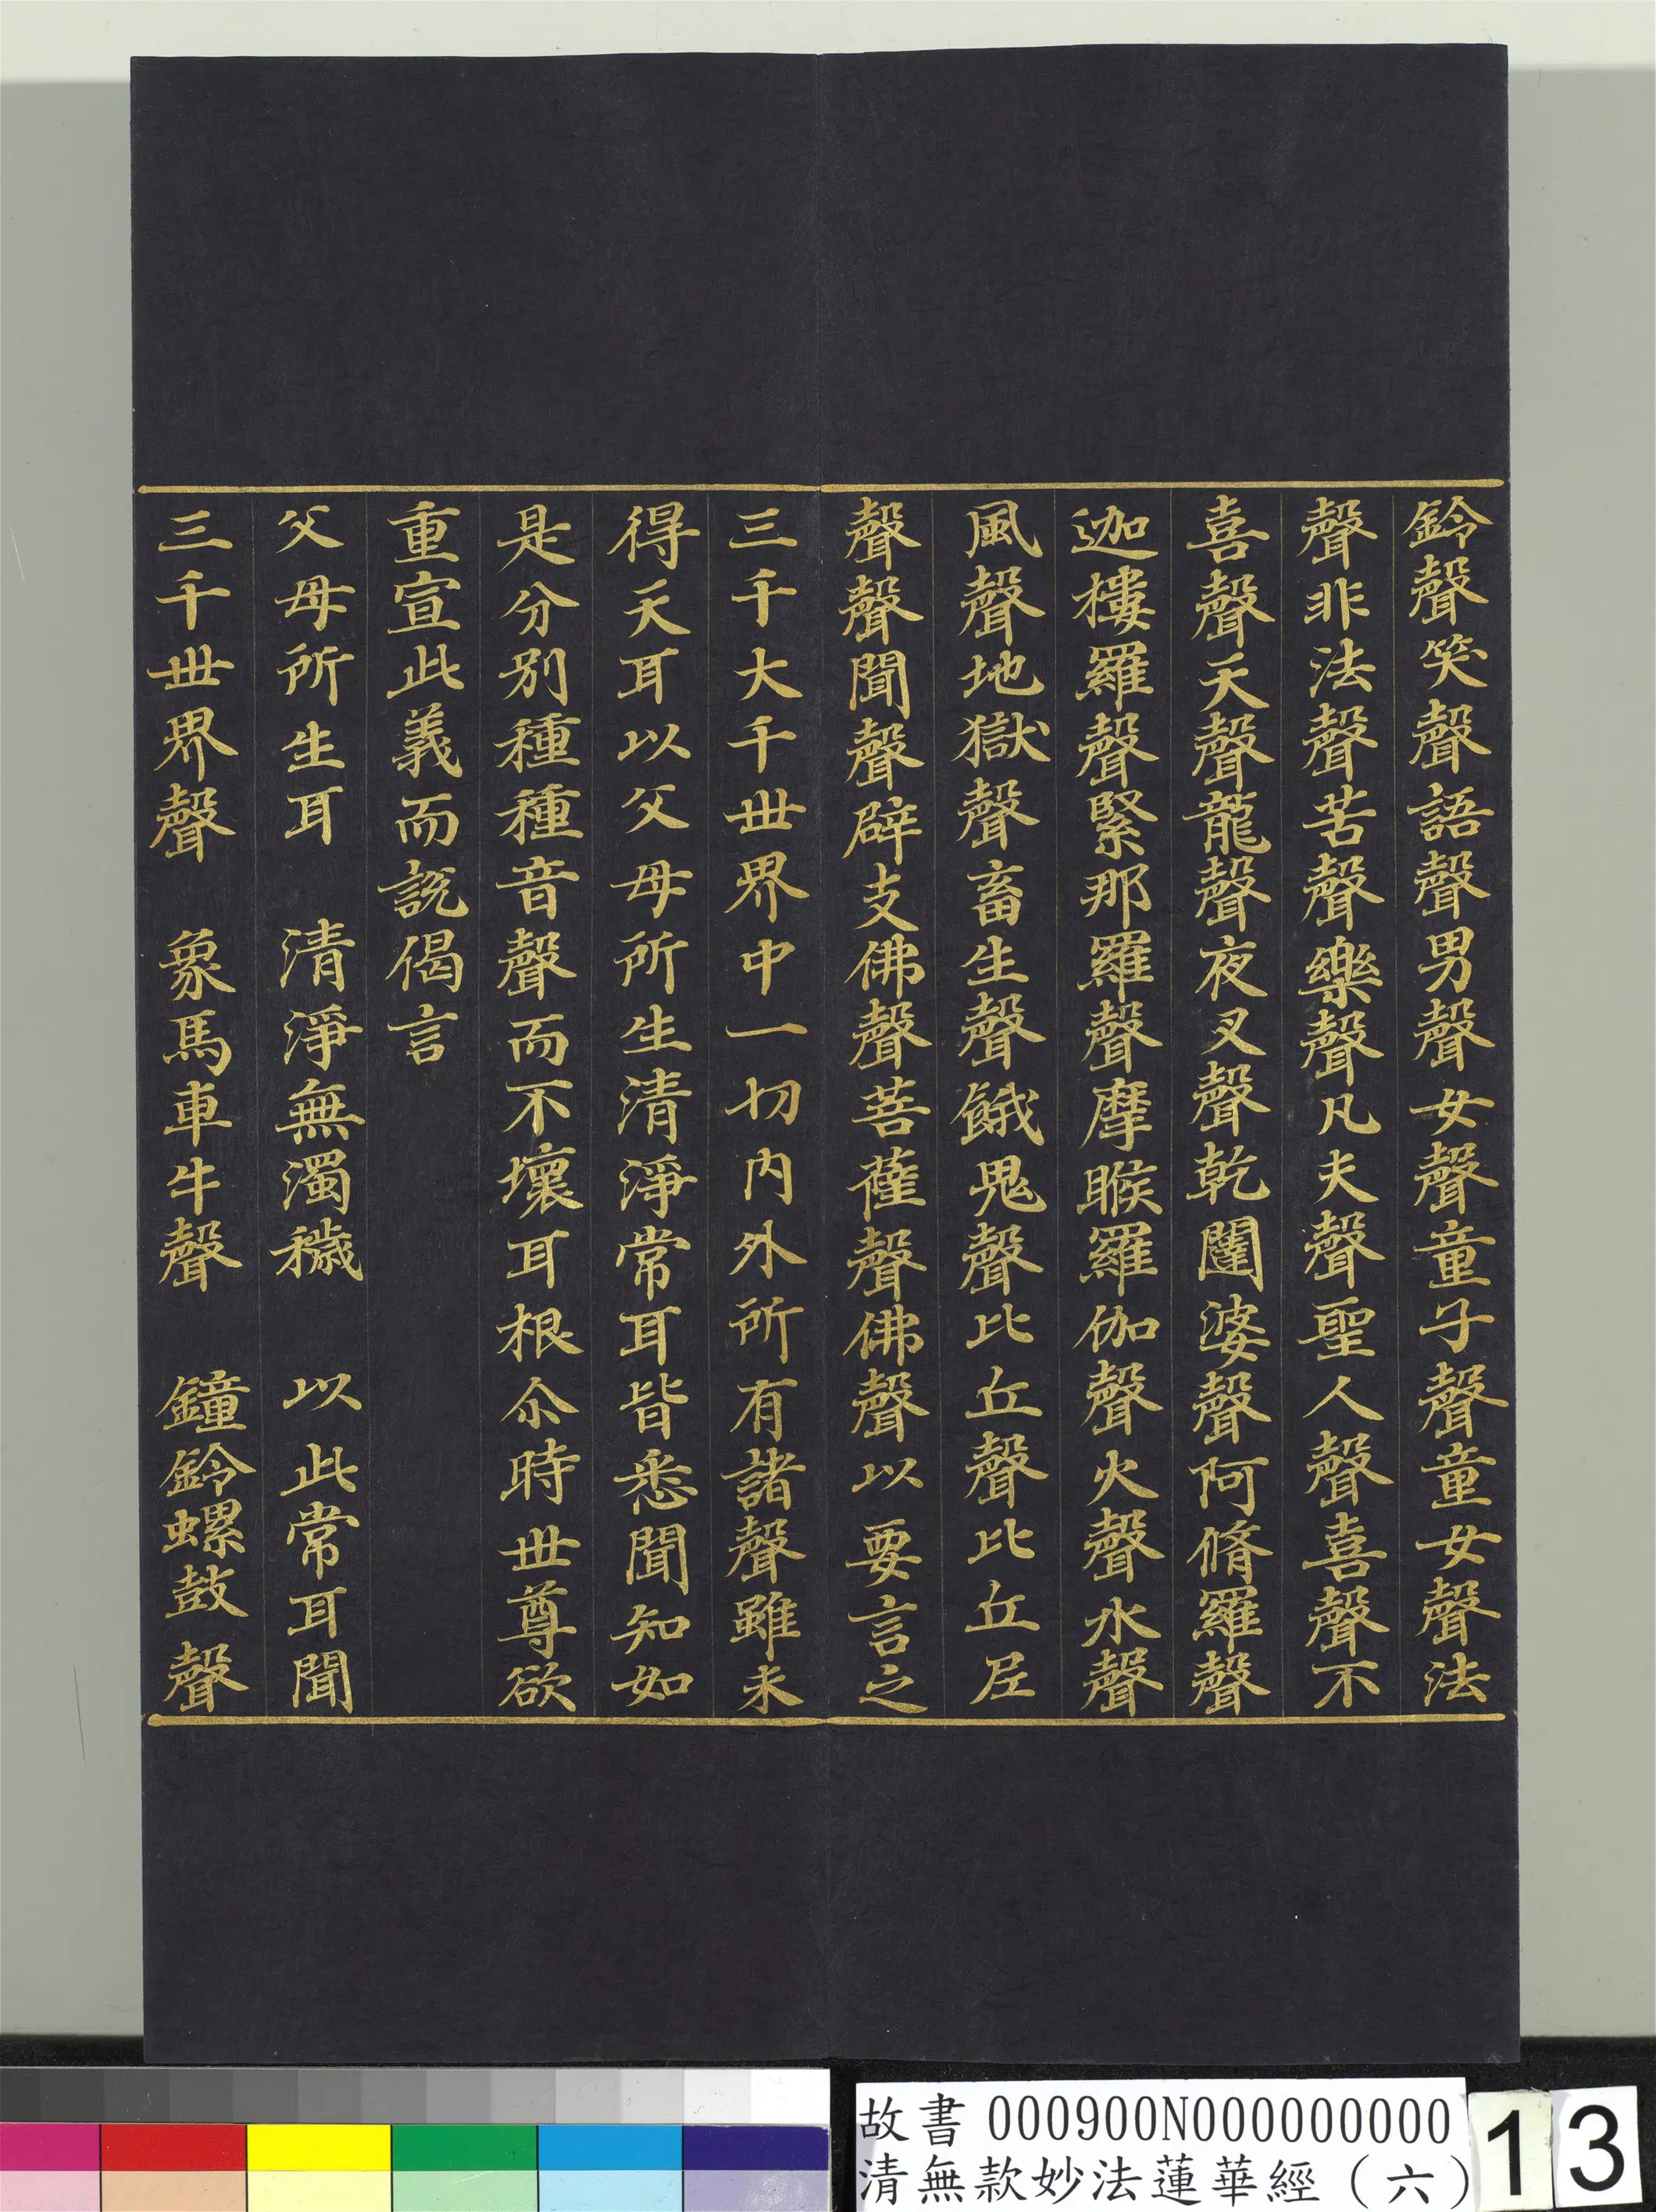 鈴聲笑聲語聲男聲女聲童子聲童女聲法
聲非法聲苦聲樂聲凡夫聲聖人聲喜聲不
喜聲天聲龍聲夜叉聲乾闥婆聲阿脩羅聲
迦樓羅聲緊那羅聲摩睺羅伽聲火聲水聲
風聲地獄聲畜生聲餓鬼聲比丘聲比丘尼
聲聲聞聲辟支佛聲菩薩聲佛聲以要言之
三千大千世界中一切內外所有諸聲雖未
得天耳以父母所生清淨常耳皆悉聞知如
是分別種種音聲而不壞耳根尒時世尊欲
重宣此義而說偈言
父母所生耳　清淨無濁穢　以此常耳聞
三千世界聲　象馬車牛聲　鐘鈴螺鼓聲
故書 000900N000000000
清無款妙法蓮華經（六）
13